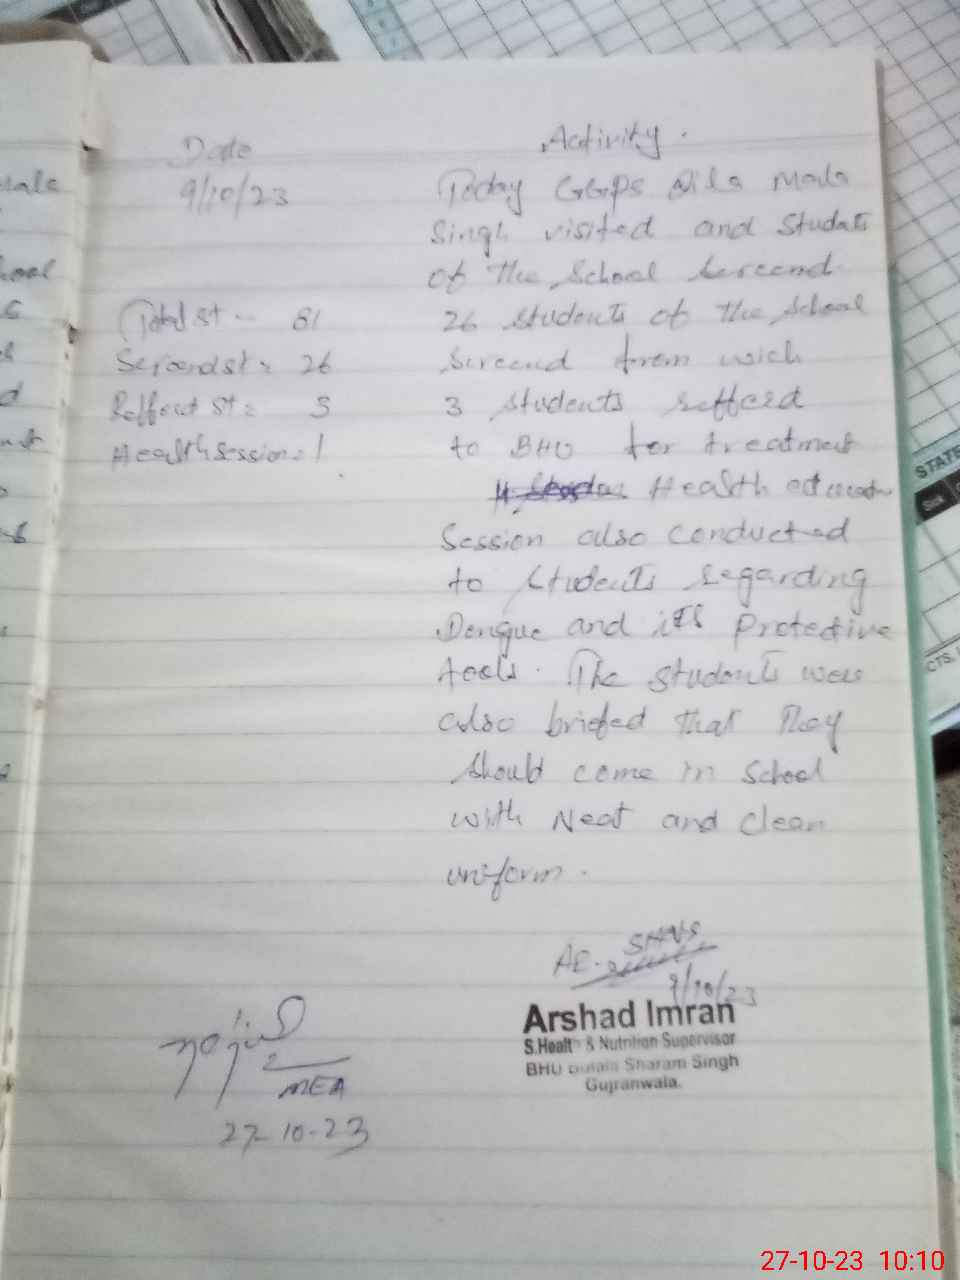 Date
Activity.
9/10/23
Today GGPS Qila Mala
Singh visited and Students
of the School Sereend
Total st = 81
26 students of the school
Sereend st = 26
Sereend from wich
Reffert st =
3 students refferd
Health session = 1
to BHU for treatment
Health education
Session also conducted
to students regarding
Dengue and its Protective
tools. The students were
also briefed that They
should come in school
with Neat and clean
uniform.
SHNS
9/10/23
Arshad Imran
S.Health & Nutrition Supervisor
BHU Sharam Singh
Gujranwala.
MEA
27-10-23
STATE
CTS,
27-10-23 10:10